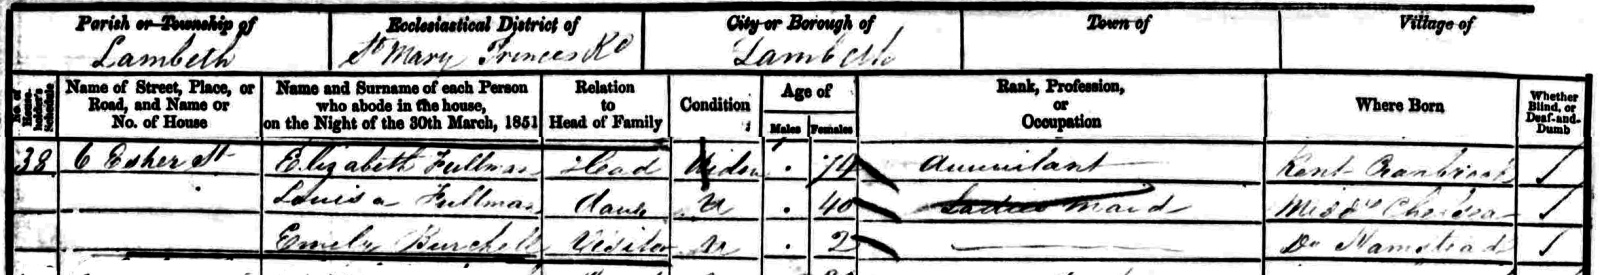 Parish or Township of Ecclesiastical District of City or Borough of Town of Village of
Lambeth St Mary Princes Rd Lambeth
No. of House-holder's Schedule Name of Street, Place, or Road, and Name or No. of House Name and Surname of each Person who abode in the house, on the Night of the 30th March, 1851 Relation to Head of Family Condition Age of Males Females Rank, Profession, or Occupation Where Born Whether Blind, or Deaf-and-Dumb
38 6 Esher St Elizabeth Fullman Head Widow 74 Annuitant Kent Cranbrook
Louisa Fullman Daur U 40 Ladies Maid Middx Chelsea
Emily Burchell Visitor U 2 Do Hamstead